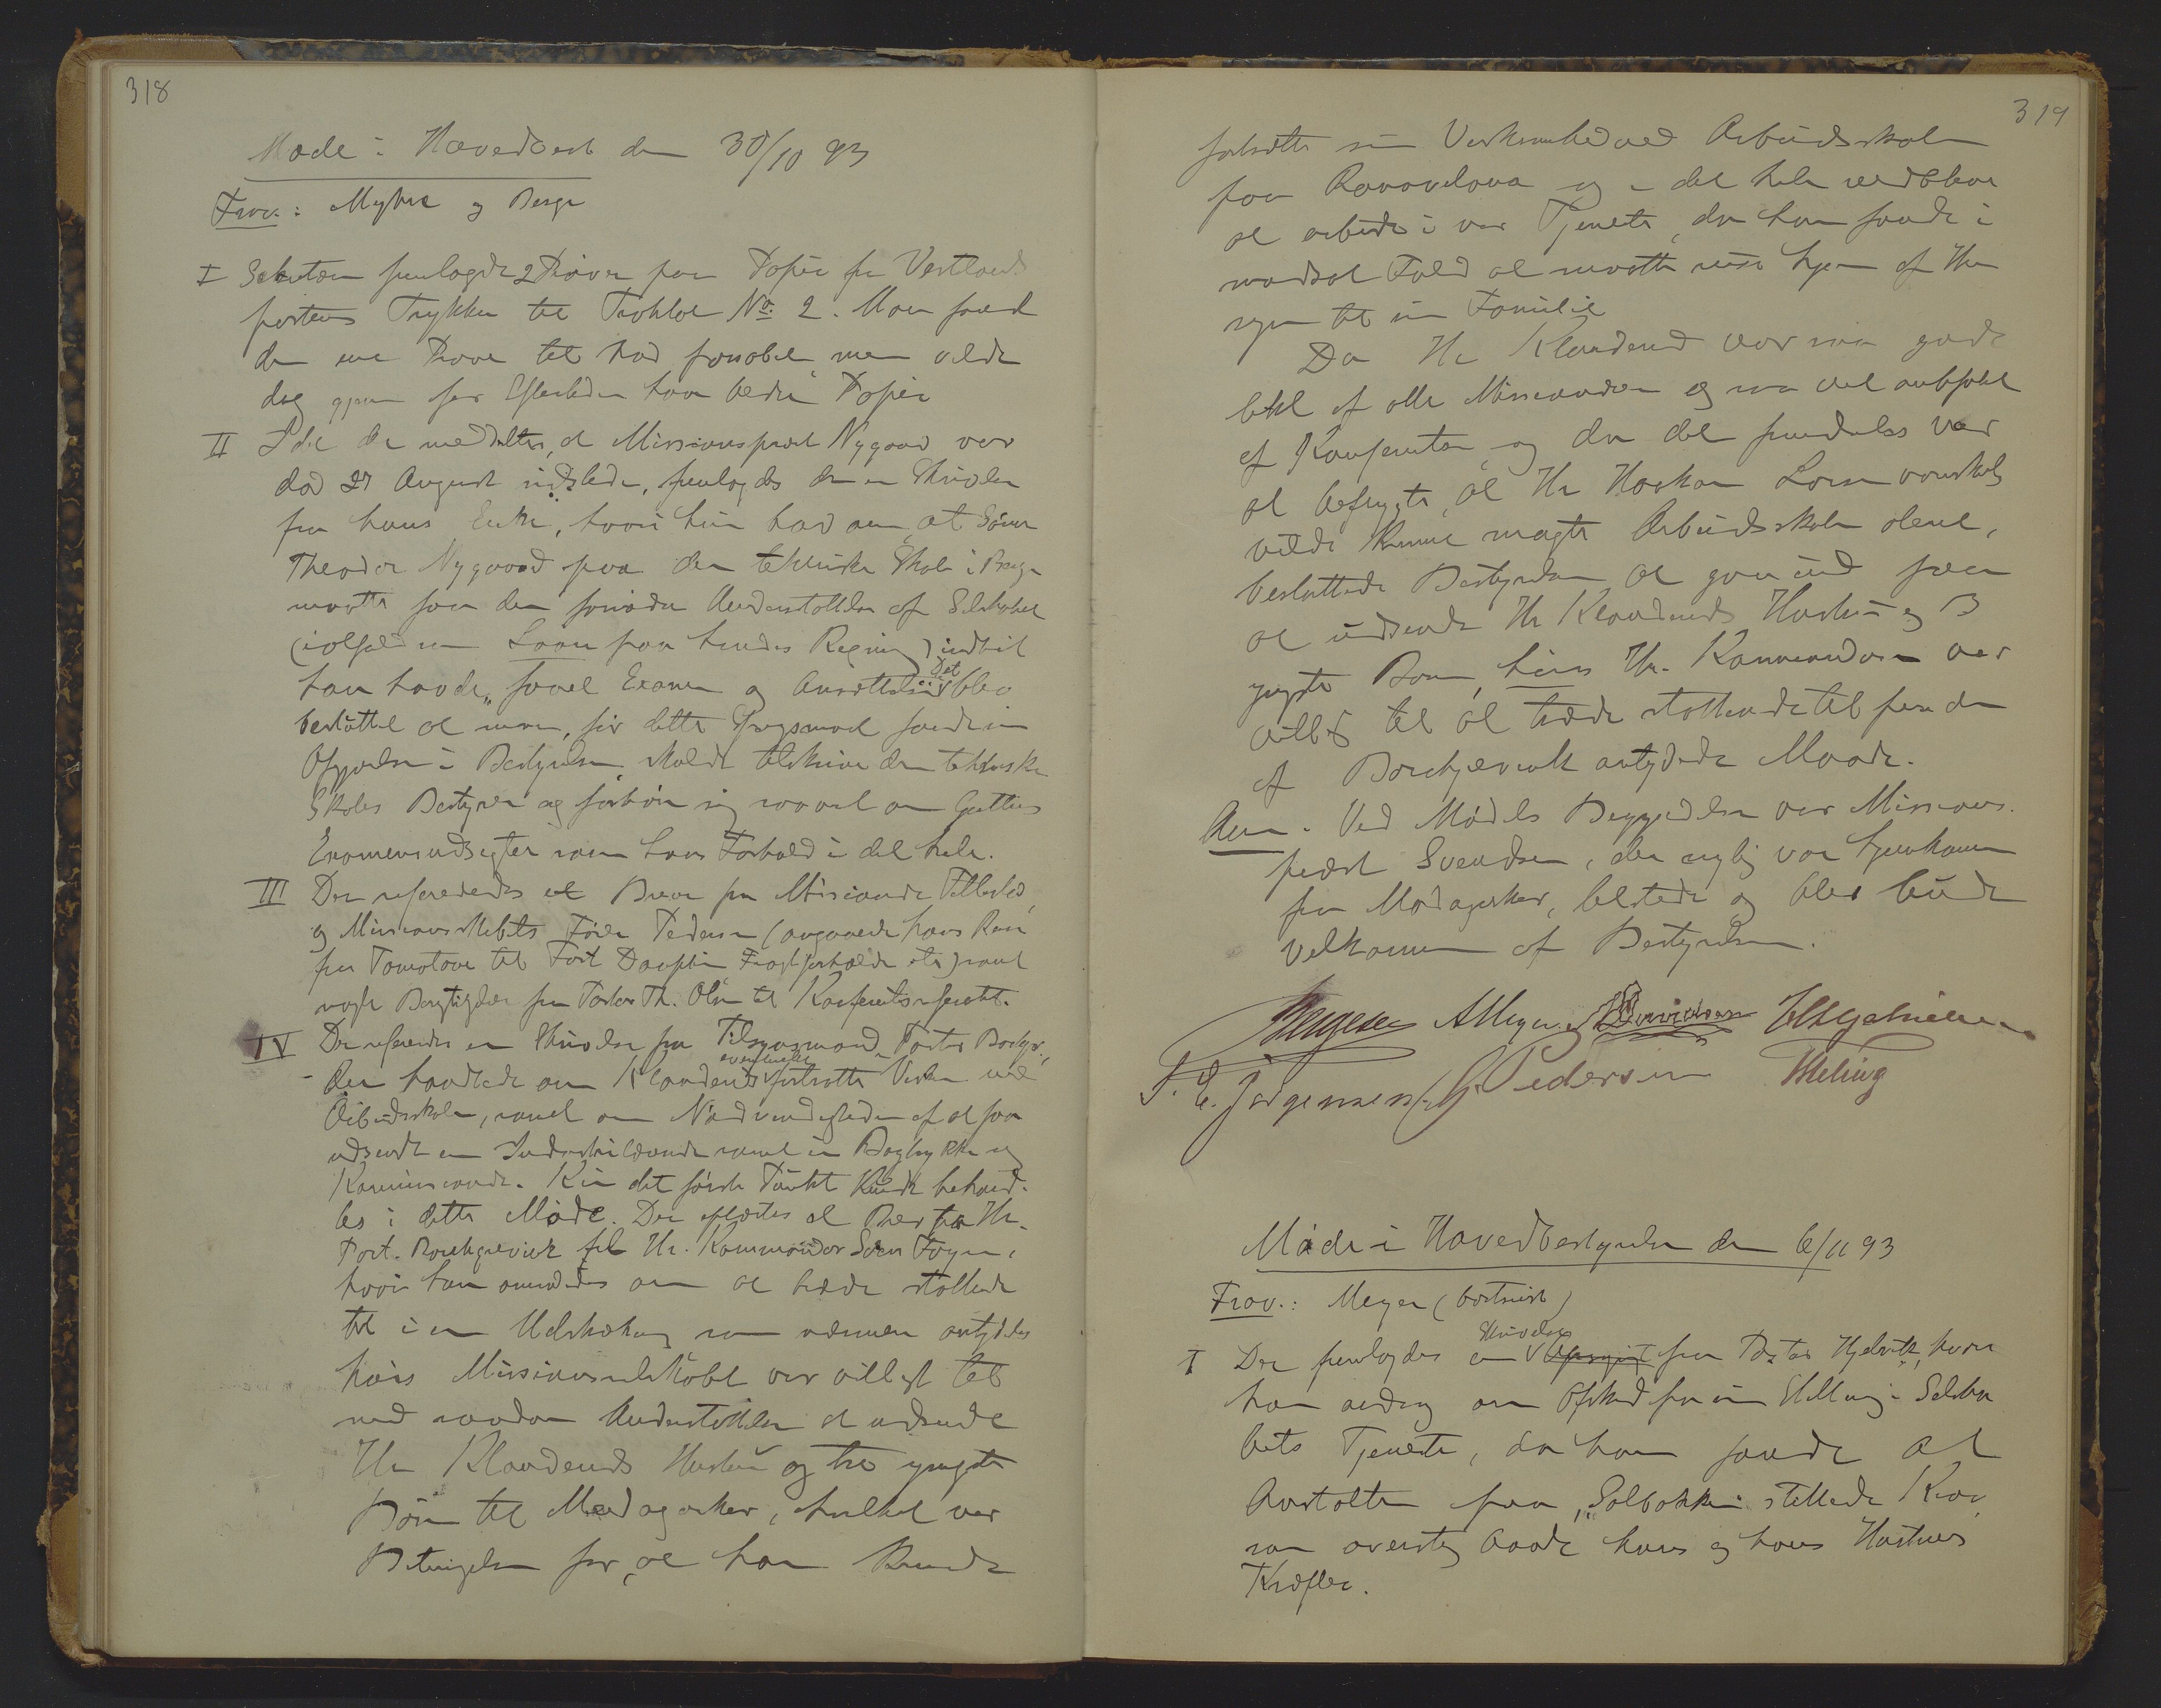 318
Møde i Hovedbest den 30/10 93
Frav.: Myhre og Berge
I Sekretæren fremlagde 2 Prøver paa Papir fra Vestlands
postens Trykkeri til Traktat No. 2. Man fandt
den ene Prøve til Nød passabel, men vilde
dog gjerne for Eftertiden have bedre Papir
II Idet der meddeltes, at Missionsprest Nygaard var
død 27 August sidstleden, fremlagdes der en Skrivelse
fra hans Enke, hvori hun bad om, at Sønnen
Theodor Nygaard paa den tekniske Skole i Bergen
maatte faa den fornødne Understøttelse af Selskabet
(ialfald som Laan paa hendes Regning) indtil
han havde faaet Examen og Ansættelse. Det blev
besluttet at man, før dette Spørgsmaal fandt sin
Afgjørelse i Bestyrelsen, skulde tilskrive den tekniske
Skoles Bestyrer og forhøre sig saavel om Guttens
Examensudsigter som hans Forhold i det hele.
III Der refereredes et Brev fra Missionær
og Missionsskibets Fører Pedersen (angaaende hans Reise
fra Tamatave til Fort Dauphin, Fragtforholde etc) samt
nogle Berigtigelser fra Pastor Th. Olsen til Konferentsreferatet.
IV Der refereredes en Skrivelse fra Tilsynsmand Pastor Borchgr.,
der handlede om Klaverids eventuelle fortsatte Virken ved
Arbeidsskolen, samt om Nødvendigheden af at faa
udsendt en Industrikyndig samt en Bogtrykker og
Kun det første Punkt kunde behand-
les i dette Møde. Der oplæstes et Brev fra Hr.
Past. Borchgrevink til Hr. Kommandør Sven Foyn,
hvori han anmodedes om at træde støttende
til i en Udstrækning som nærmere antydedes
hvis Missionsselskabet var villigt til
med saadan Understøttelse at udsende
Hr Klaveruds Hustru og tre yngste
Børn til Madagaskar, hvilket var
Betingelsen for, at han kunde
319
fortsætte sin Virksomhed ved Arbeidsskolen
paa Ranovelona og i det hele vedblive
at arbeide i vor Tjeneste, da han fandt i
modsat Fald at maatte reise hjem af Hen
syn til sin Familie
Da Hr Klaverud var saa godt
likt af alle Missionærer og saa vel anbefalet
af Konferentsen, og da det fremdeles var
at befrygte, at Hr Haakon Larsen vanskelig
vilde kunne magte Arbeidsskolen alene,
besluttede Bestyrelsen at gaa ind paa
at udsende Hr Klaveruds Hustru og 3
yngste Børn, hvis Hr. Kommandøren var
villig til at træde støttende til paa den
af Borchgrevink antydede Maade.
Anm. Ved Mødets Begyndelse var Missions-
prest Svendsen, der nylig var hjemkommen
fra Madagaskar, tilstede og blev budt
velkommen af Bestyrelsen.
Bergesen AMeyer Davidsen
T. C. Jørgensen G. Pedersen Meling
Møde i Hovedbestyrelsen den 6/11 93
Frav.: Meyer (bortreist)
I Der fremlagdes en Skrivelse fra Pastor Hjelvik, hvori
han androg om Afsked fra sin Stilling i Selska
bets Tjeneste, da han fandt at
Anstalten paa "Solbakken" stillede Krav,
som oversteg baade hans og hans Hustrues
Kræfter.